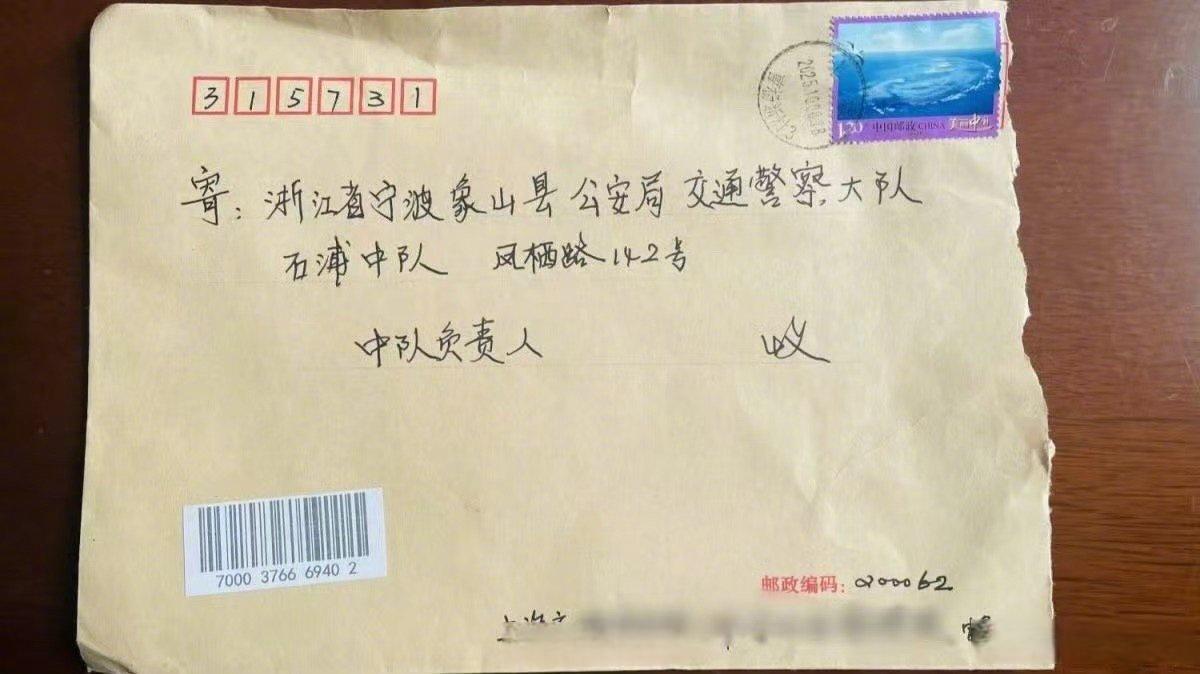 315731
1.20 中国邮政 CHINA 美丽中国
寄：浙江省宁波象山县公安局交通警察大队
石浦中队 凤栖路142号
中队负责人 收
7000 3766 6940 2
邮政编码：200062
上海市